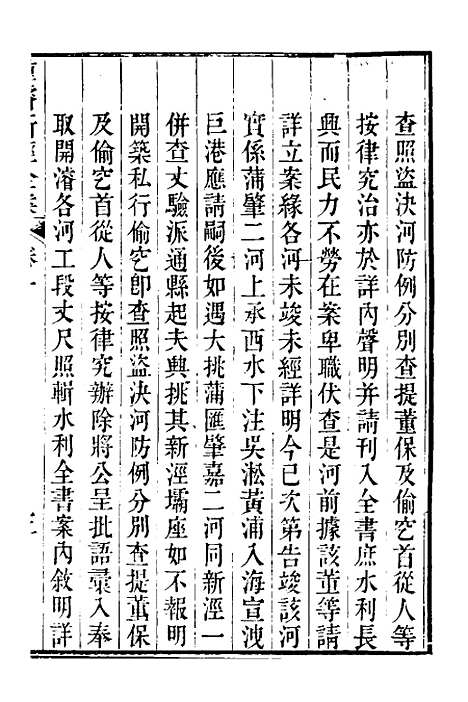 查照盜決河防例分別查提董保及偷空首從人等
按律究治亦於詳內聲明并請刊入全書庶水利長
興而民力不勞在案卑職伏查是河前據該董等請
詳立案緣各河未竣未經詳明今已次第告竣該河
實係蒲肇二河上承西水下注吳淞黃浦入海宣洩
巨港應請嗣後如遇大挑蒲匯肇嘉二河同新涇一
併查丈驗派通縣起夫興挑其新涇壩座如不報明
開築私行偷空卽查照盜決河防例分別查提董保
及偷空首從人等按律究辦除將公呈批語彙入奉
取開濬各河工段丈尺照輯水利全書案內敘明詳
全案
卷一